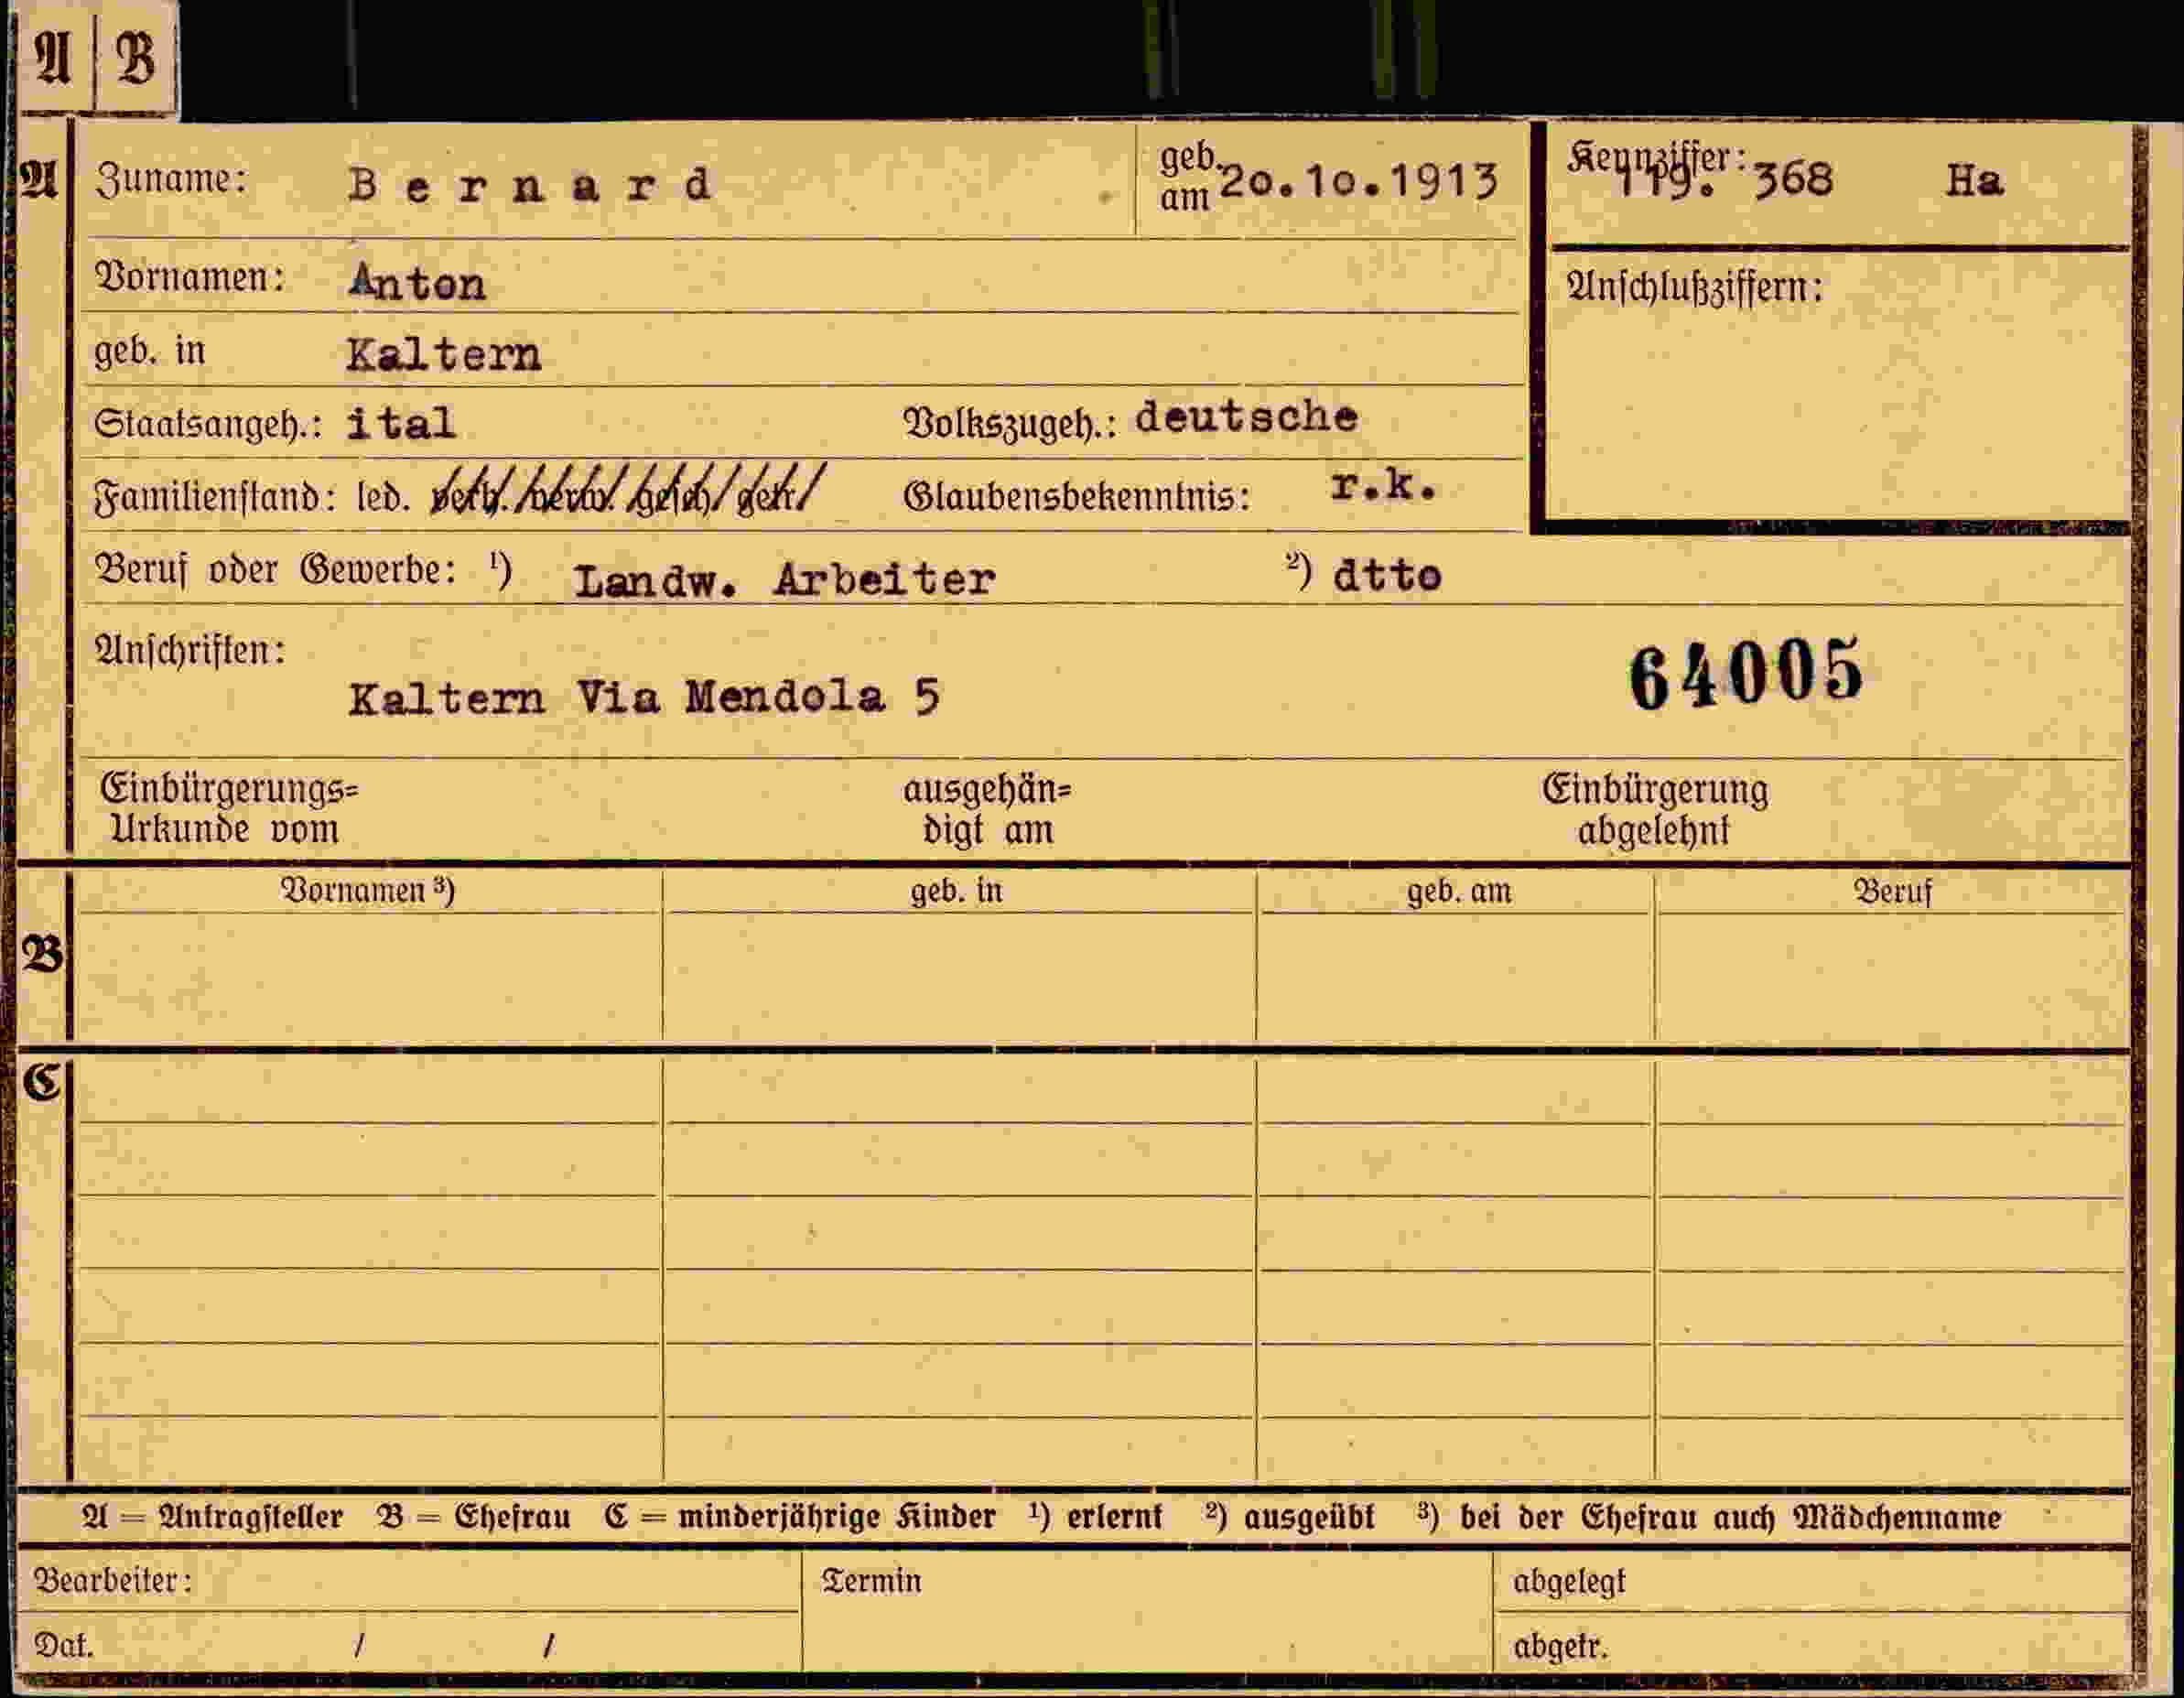 A B
A Zuname: Bernard geb. am 20.10.1913 Kennziffer: 119. 368 Ha
Vornamen: Anton Anschlußziffern:
geb. in Kaltern
Staatsangeh.: ital Volkszugeh.: deutsche
Familienstand: led. verh. verw. gesch. getr. Glaubensbekenntnis: r.k.
Beruf oder Gewerbe: ¹) Landw. Arbeiter ²) dtto
Anschriften:
Kaltern Via Mendola 5 64005
Einbürgerungs= ausgehän= Einbürgerung
Urkunde vom digt am abgelehnt
Vornamen ³) geb. in geb. am Beruf
B
C
A = Antragsteller B = Ehefrau C = minderjährige Kinder ¹) erlernt ²) ausgeübt ³) bei der Ehefrau auch Mädchenname
Bearbeiter: Termin abgelegt
Dat. / / abgetr.